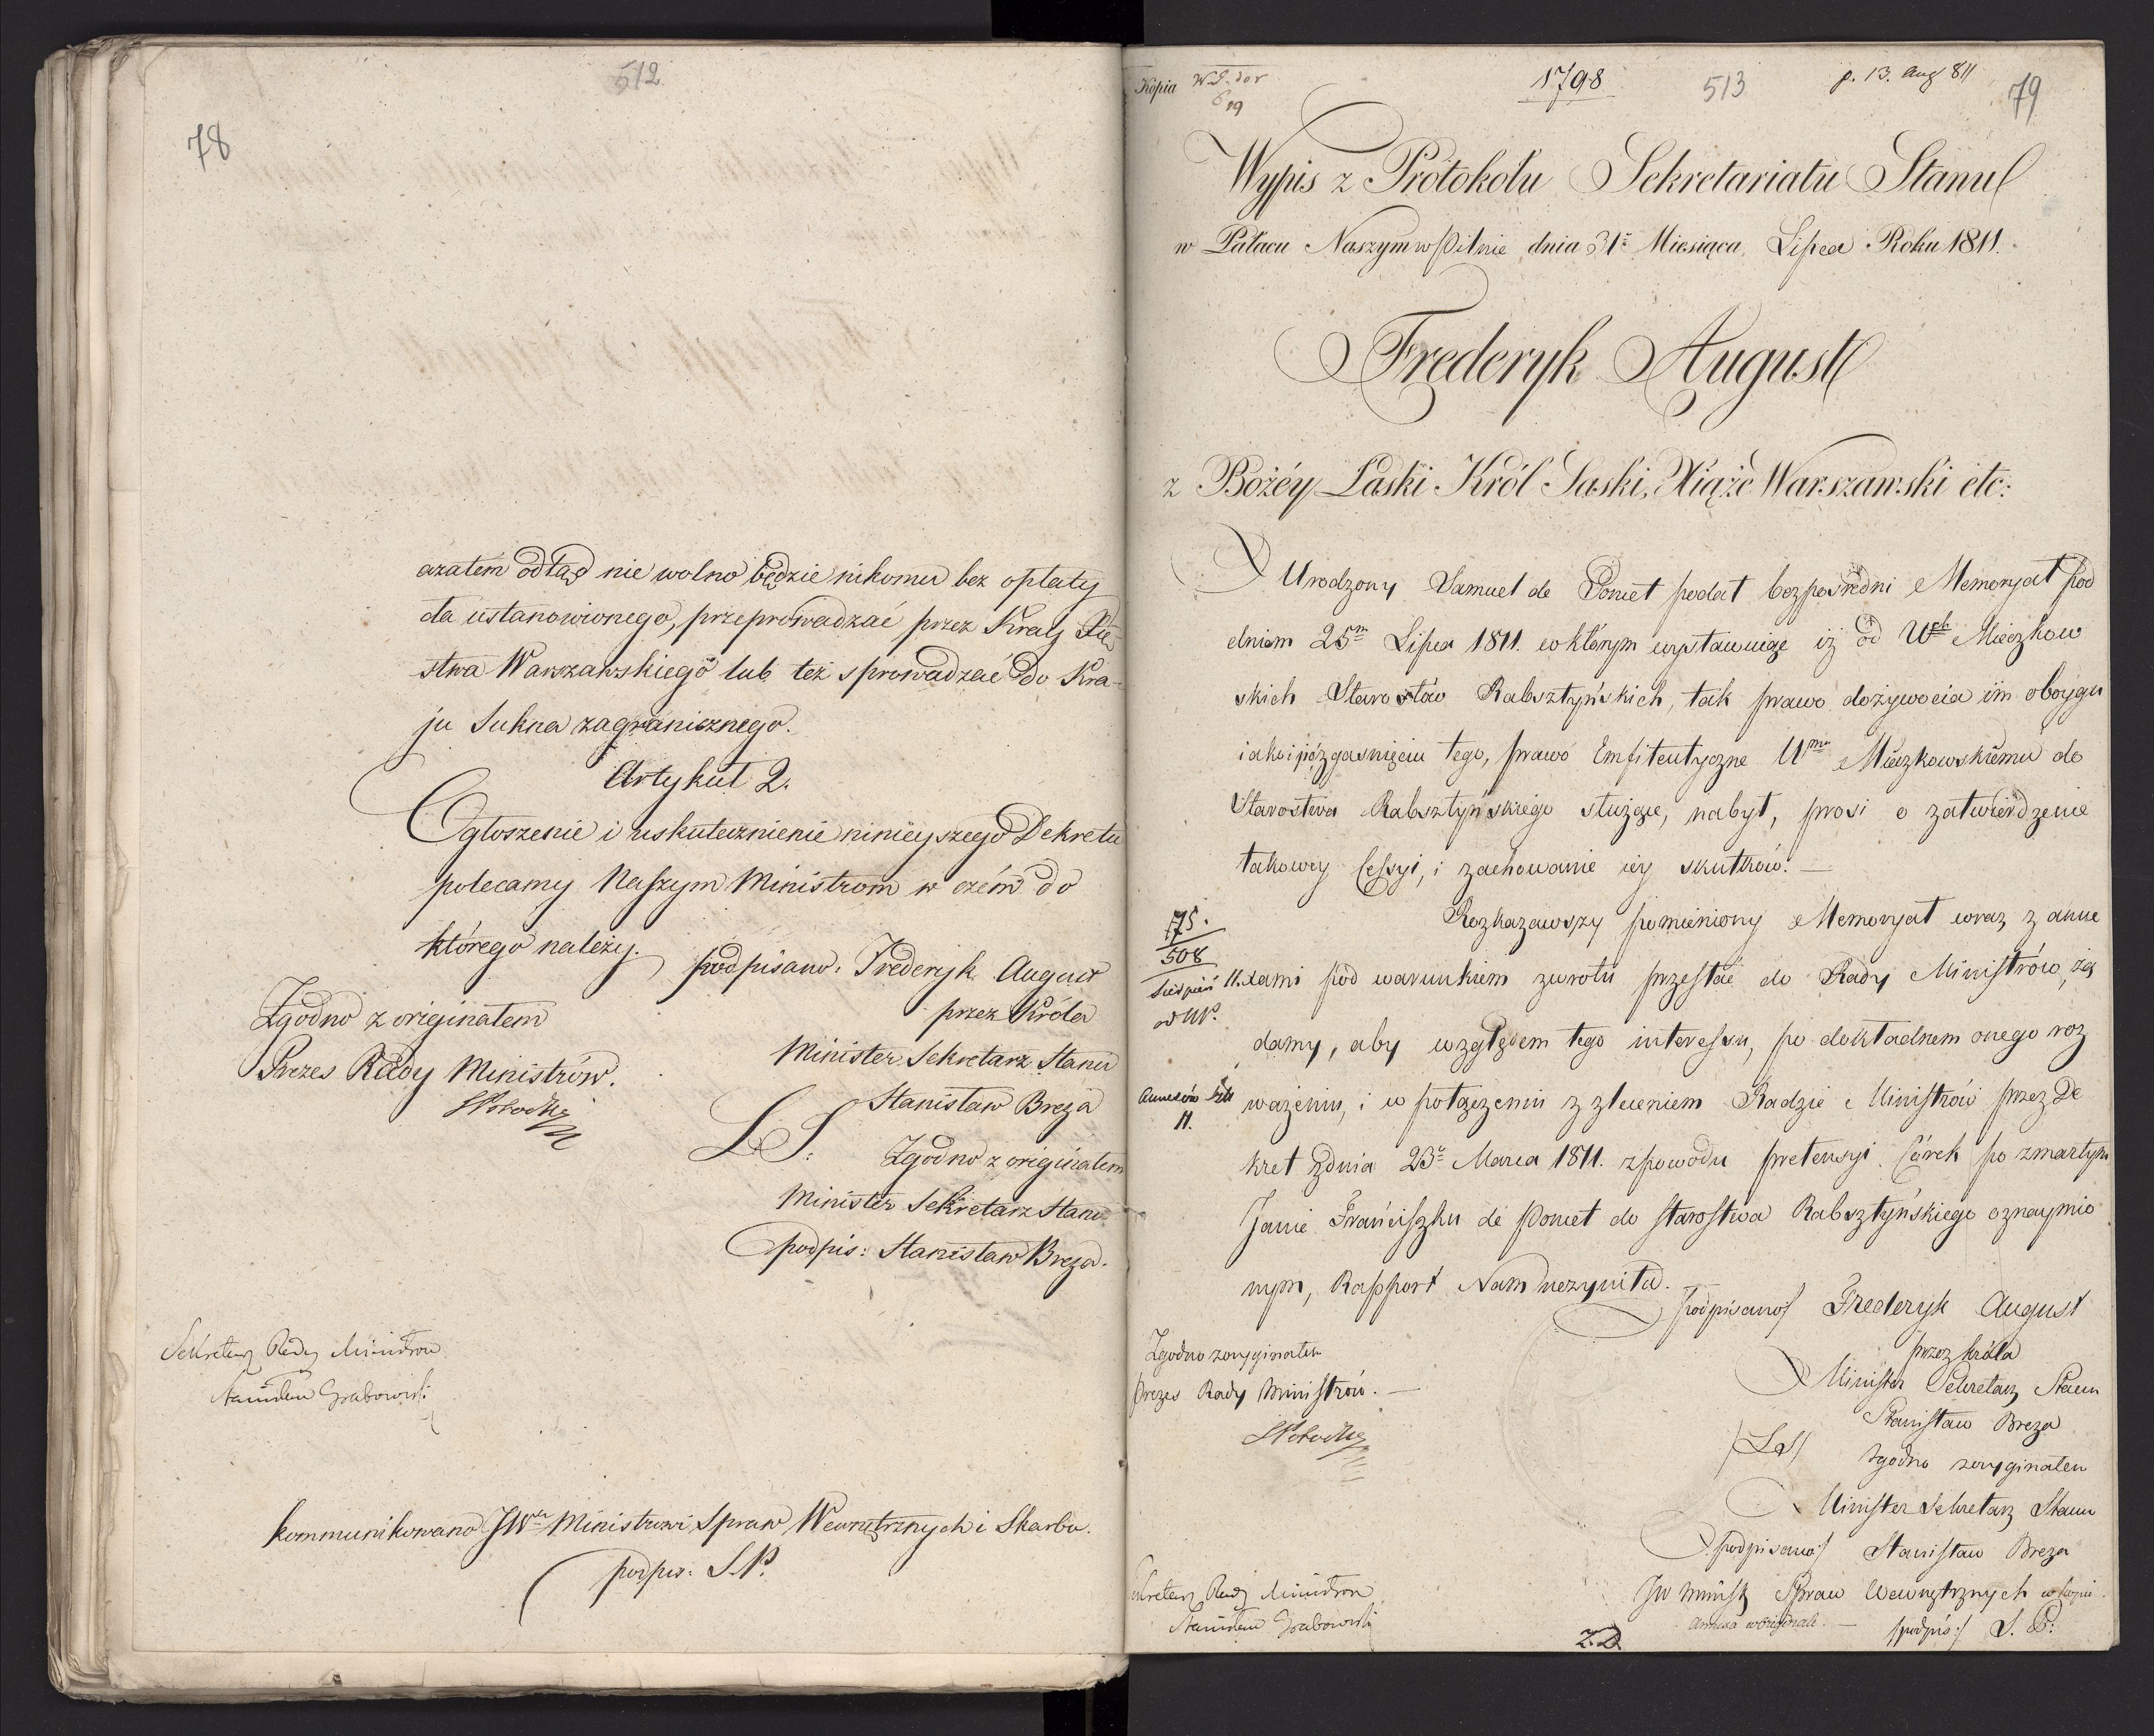 512
78
azatém odtąd nie wolno będzie nikomu bez opłaty
cła ustanowionego, przeprowadzać przez Kray Xię
stwa Warszawskiego lub też sprowadzać do Kra-
ju Sukna zagranicznego.
Artykuł 2.
Ogłoszenie i uskutecznienie ninieyszego Dekretu
polecamy Naszym Ministrom w czém do
którego należy.
podpisano: Frederyk August
przez Króla
Minister Sekretarz Stanu
Stanisław Breza
L.S. Zgodno z originałem
Minister Sekretarz Stanu
podpis: Stanisław Breza.
Zgodno z originałem
Prezes Rady Ministrów.
Sekretarz Rady Ministrow
Stanisław Grabowski
kommunikowano JW Ministrowi Spraw Wewnętrznych i Skarbu.
podpis: S.P.
Kopia
1798
513
p. 13. Aug 811
79
Wypis z Protokołu Sekretariatu Stanu
w Pałacu Naszym w Pilnie dnia 31 Miesiąca Lipca Roku 1811.
Frederyk August
z Bożéy Łaski Król Saski, Xiążę Warszawski etc:
Urodzony Samuel de Poniet podał bezpośredni Memoryał pod
dniem 25m Lipca 1811. w którym wystawuiąc iż od Uch Mieczkow
skich Starostów Rabsztyńskich, tak prawo dożywocia im oboygu
iako i po zgasnięciu tego, prawo Emfiteutyczne Umu Mieczkowskiemu do
Starostwa Rabsztyńskiego służące, nabył, prosi o zatwierdzenie
takowey Cessyi, i zachowanie iey skutków. —
Rozkazawszy pomieniony Memoryał wraz z anne
xami pod warunkiem zwrotu przesłać do Rady Ministrów, żą
damy, aby względem tego interessu, po dokładnem onego roz
ważeniu, i w połączeniu z zleceniem Radzie Ministrów przez De
kret z dnia 23 Marca 1811. z powodu pretensyi Córek po zmarłym
Janie Franciszku de Poniet do starostwa Rabsztyńskiego oznaymio
nym, Rapport Nam uczyniła.
175.
508
Sierpień 11.
11.
podpisano/ Frederyk August
przez króla
Minister Sekretarz Stanu
Stanisław Breza
/LS/ Zgodno z oryginałem
Minister Sekretarz Stanu
podpisano/ Stanisław Breza
Zgodno z oryginałem
Prezes Rady Ministrów. —
Sekretarz Rady Ministrow
Stanisław Grabowski
JW Minist Spraw Wewnętrznych w kopii
annexa w originale. — /podpis:/ S. P.